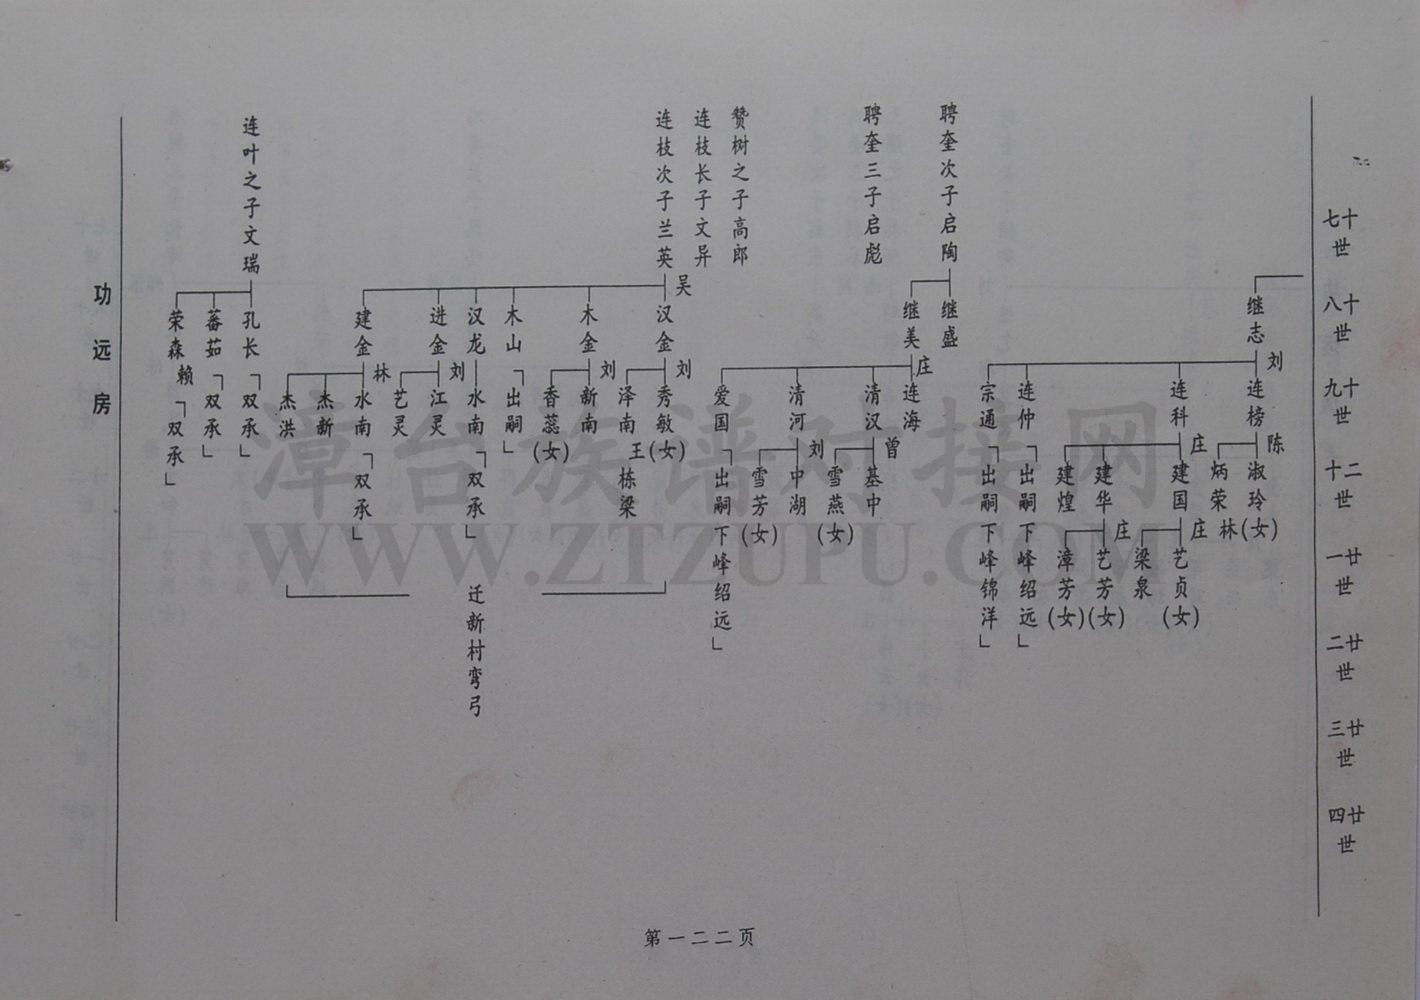 十七世
十八世
十九世
二十世
廿一世
廿二世
廿三世
廿四世
继志
刘
连榜
连科
连仲
宗通
陈
淑玲(女)
炳荣
林
庄
建国
建华
建煌
「出嗣下峰绍远」
「出嗣下峰锦洋」
庄
艺贞(女)
梁泉
庄
艺芳(女)
漳芳(女)
聘奎次子启陶
继盛
继美
庄
连海
清汉
清河
爱国
曾
基中
雪燕(女)
刘
中湖
雪芳(女)
「出嗣下峰绍远」
聘奎三子启彪
赞树之子高郎
连枝长子文异
连枝次子兰英
吴
汉金
木金
木山
汉龙
进金
建金
刘
秀敏(女)
泽南
王
栋梁
刘
新南
香蕊(女)
「出嗣」
水南
「双承」
刘
江灵
艺灵
林
水南
杰新
杰洪
「双承」
迁新村弯弓
连叶之子文瑞
孔长
蕃茹
荣森
赖
「双承」
「双承」
「双承」
功远房
第一二二页
漳台族谱对接网
WWW.ZTZUPU.COM